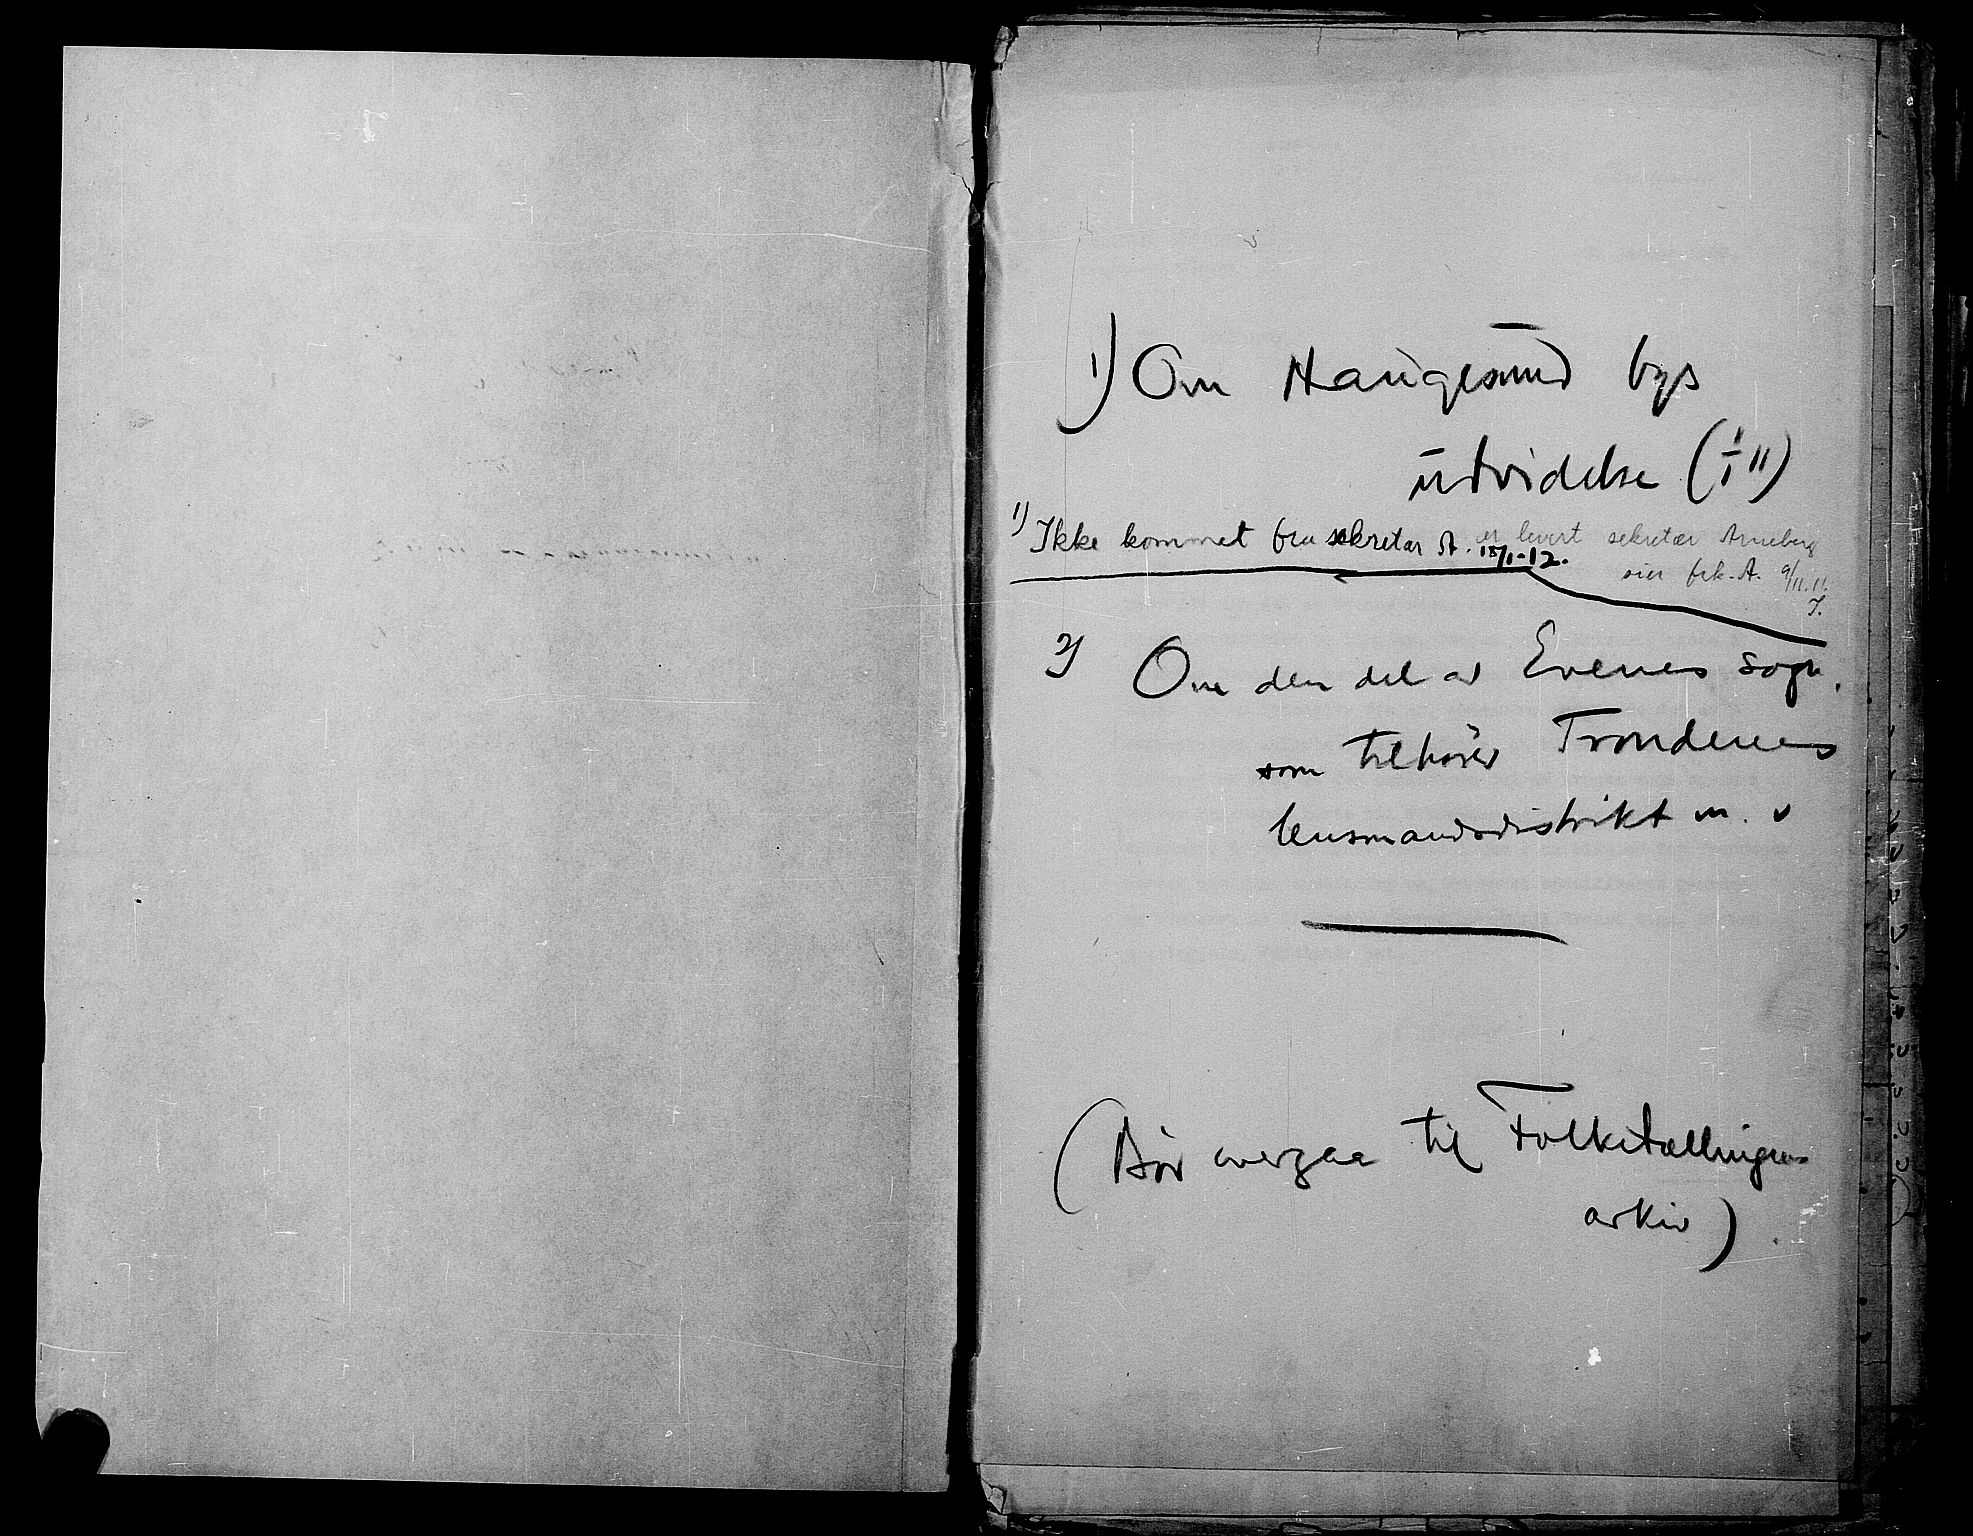 1) Om Haugesund bys
utvidelse (1/1 11)
1) Ikke kommet fra sekretær A. 15/1-12.
er levert sekretær Arneberg
sier frk. A. 9/11.11.
2) Om den del av Evenes sogn,
som tilhører Trondenes
lensmandsdistrikt m. v
(Bør overgaa til Folketællingens
arkiv)